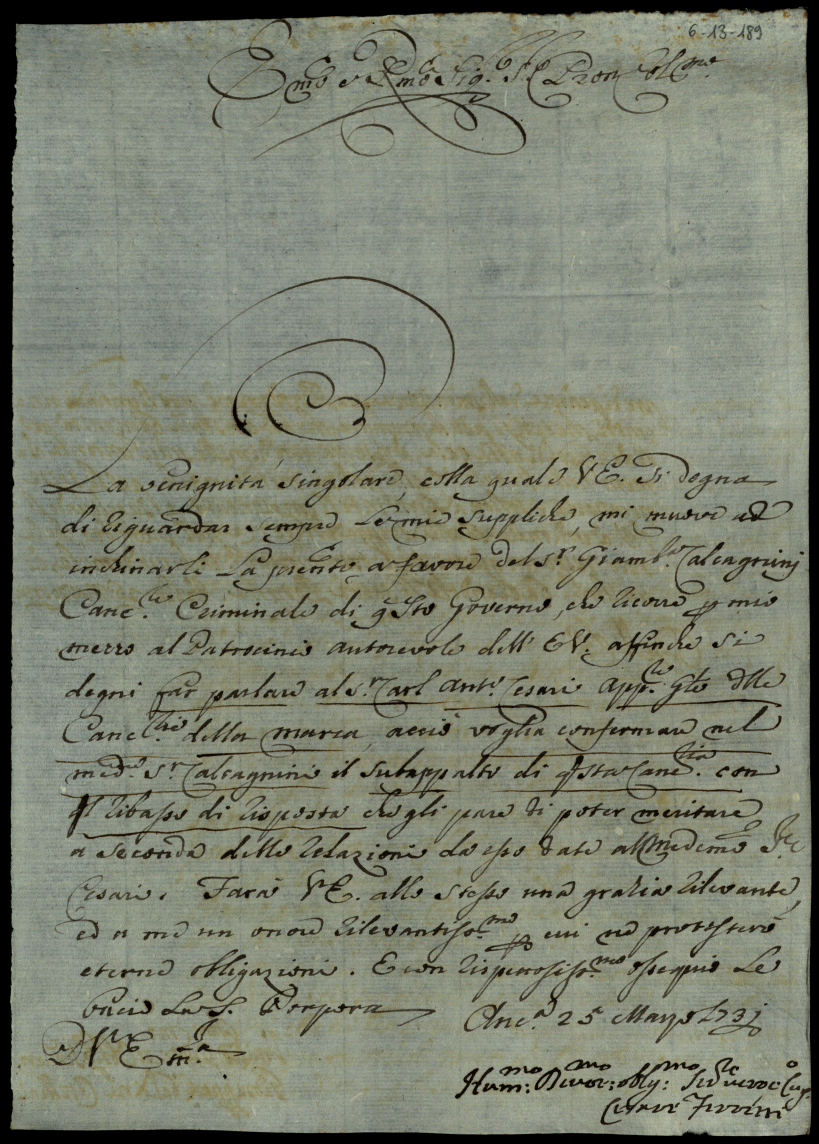 6-13-189
Em̃o e R̃mo Sig.r S.r Pron Col.mo
La benignità singolare, colla quale V.E. si degna
di riguardar sempre le mie suppliche, mi muove ad
inchinarli la p̃sente a favore del S.r Giamb.a Calcagnini
Canc.re Criminale di q̃sto Governo, che ricorre p mio
mezzo al Patrocinio autorevole dell' E.V. affinche si
degni far parlare al S.r Carl Ant.o Cesari App.re Gl̃e dlle
Canc.rie della Marca, acciò voglia confermare nel
med.o S.r Calcagnini il subappalto di q̃sta Canc.ria con
ql ribasso di risposta che gli pare di poter meritare
a seconda delle relazioni da esso date al medemo S.r
Cesari. Farà V.E. allo stesso una grazia rilevante,
ed a me un onore rilevantiss.mo p cui ne protesterò
eterne obligazioni. E con rispettosiss.mo ossequio le
bacio la S. Porpora
D V.E. Em̃a
Anc.a 25 Marzo 173j
Hum:mo Divot:mo oblig:mo Ser.re vero e